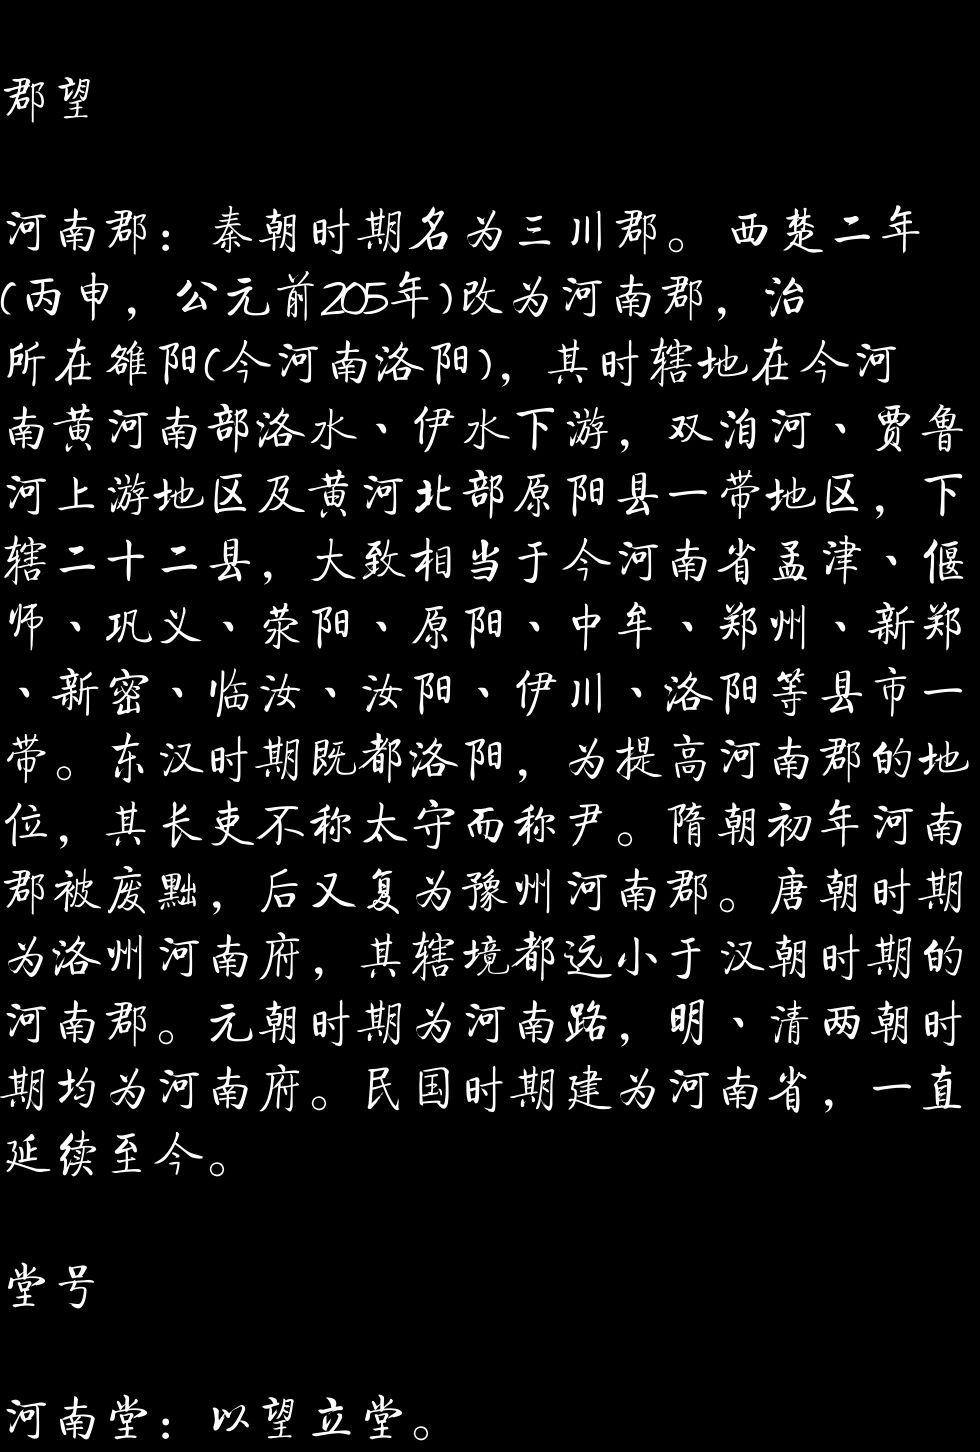 郡望
河南郡：秦朝时期名为三川郡。西楚二年
(丙申，公元前205年)改为河南郡，治
所在雒阳(今河南洛阳)，其时辖地在今河
南黄河南部洛水、伊水下游，双洎河、贾鲁
河上游地区及黄河北部原阳县一带地区，下
辖二十二县，大致相当于今河南省孟津、偃
师、巩义、荥阳、原阳、中牟、郑州、新郑
、新密、临汝、汝阳、伊川、洛阳等县市一
带。东汉时期既都洛阳，为提高河南郡的地
位，其长吏不称太守而称尹。隋朝初年河南
郡被废黜，后又复为豫州河南郡。唐朝时期
为洛州河南府，其辖境都远小于汉朝时期的
河南郡。元朝时期为河南路，明、清两朝时
期均为河南府。民国时期建为河南省，一直
延续至今。
堂号
河南堂：以望立堂。